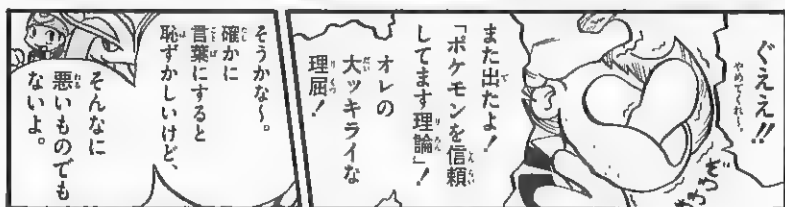 ぐええ!!
やめてくれ〜。
また出たよ!
「ポケモンを信頼
してます理論」!
オレの
大ッキライな
理屈!
そうかな〜。
確かに
言葉にすると
恥ずかしいけど、
そんなに
悪いものでも
ないよ。